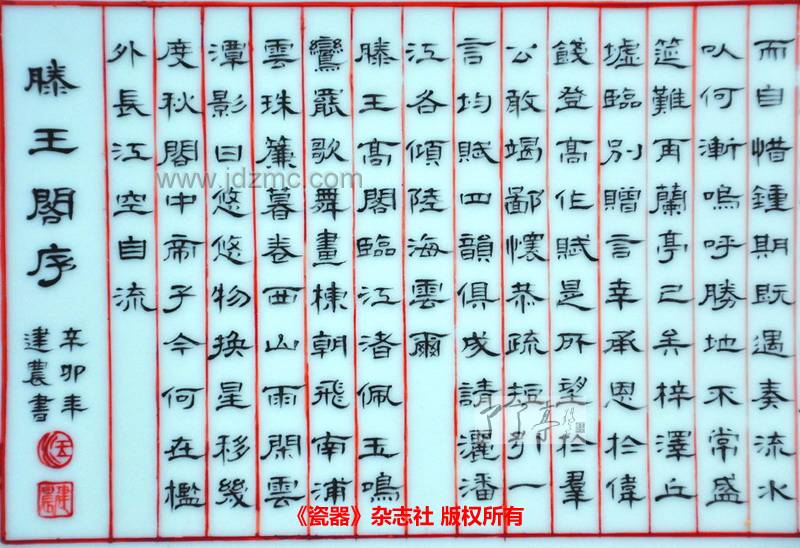 而自惜鍾期既遇奏流水
以何漸嗚呼勝地不常盛
筵難再蘭亭已矣梓澤丘
墟臨別贈言幸承恩於偉
餞登高作賦是所望於羣
公敢竭鄙懷恭疏短引一
言均賦四韻俱成請灑潘
江各傾陸海雲爾
滕王高閣臨江渚佩玉鳴
鸞罷歌舞畫棟朝飛南浦
雲珠簾暮卷西山雨閑雲
潭影日悠悠物換星移幾
度秋閣中帝子今何在檻
外長江空自流
滕王閣序
辛卯年
建農書
建農
www.jdzmc.com
《瓷器》杂志社 版权所有